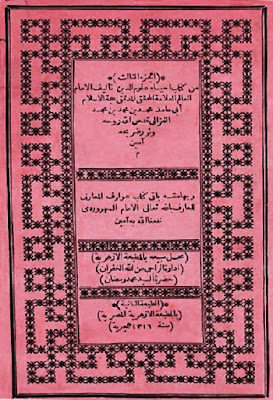 *(الجزء الثالث)*
من كتاب احياء علوم الدين تأليف الامام
العالم العلامة المحقق المدقق حجة الاسلام
أبي حامد محمد بن محمد بن محمد
الغزالى قدس الله روحه
ونور ضريحه
آمين
م
وبهامشه باقى كتاب عوارف المعارف
للعارف بالله تعالى الامام السهروردى
نفعنا الله به آمين
(محل مبيعه بالمطبعة الازهرية)
(ادارة الراجى من الله الغفران)
(حضرة السيد محمد رمضان)
*(الطبعة الثانية)*
(بالمطبعة الازهرية المصرية)
(سنة ١٣١٦ هجرية)